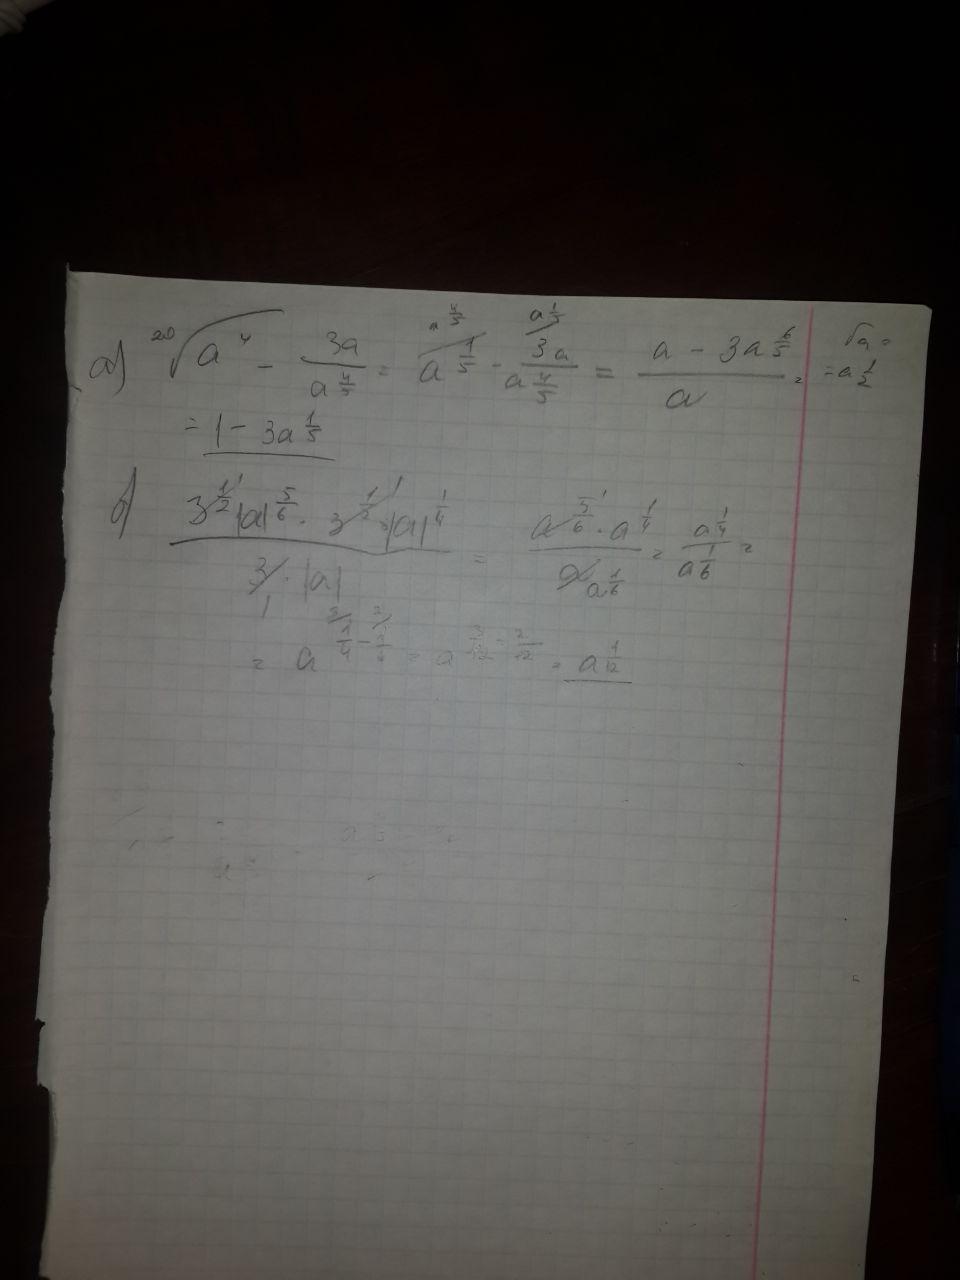 а) ²⁰√a⁴ - 3a/a^(4/5) = a^(1/5) - 3a/a^(4/5) = (a - 3a^(6/5))/a = √a =
= 1 - 3a^(1/5) = a^(1/2)
б) (3^(1/2)|a|^(5/6) · 3^(1/2)·|a|^(1/4))/(3·|a|) = (a^(5/6) · a^(1/4))/(a a^(1/6)) = a^(1/4)/a^(1/6) =
= a^(1/4 - 1/6) = a^(3/12 - 2/12) = a^(1/12)